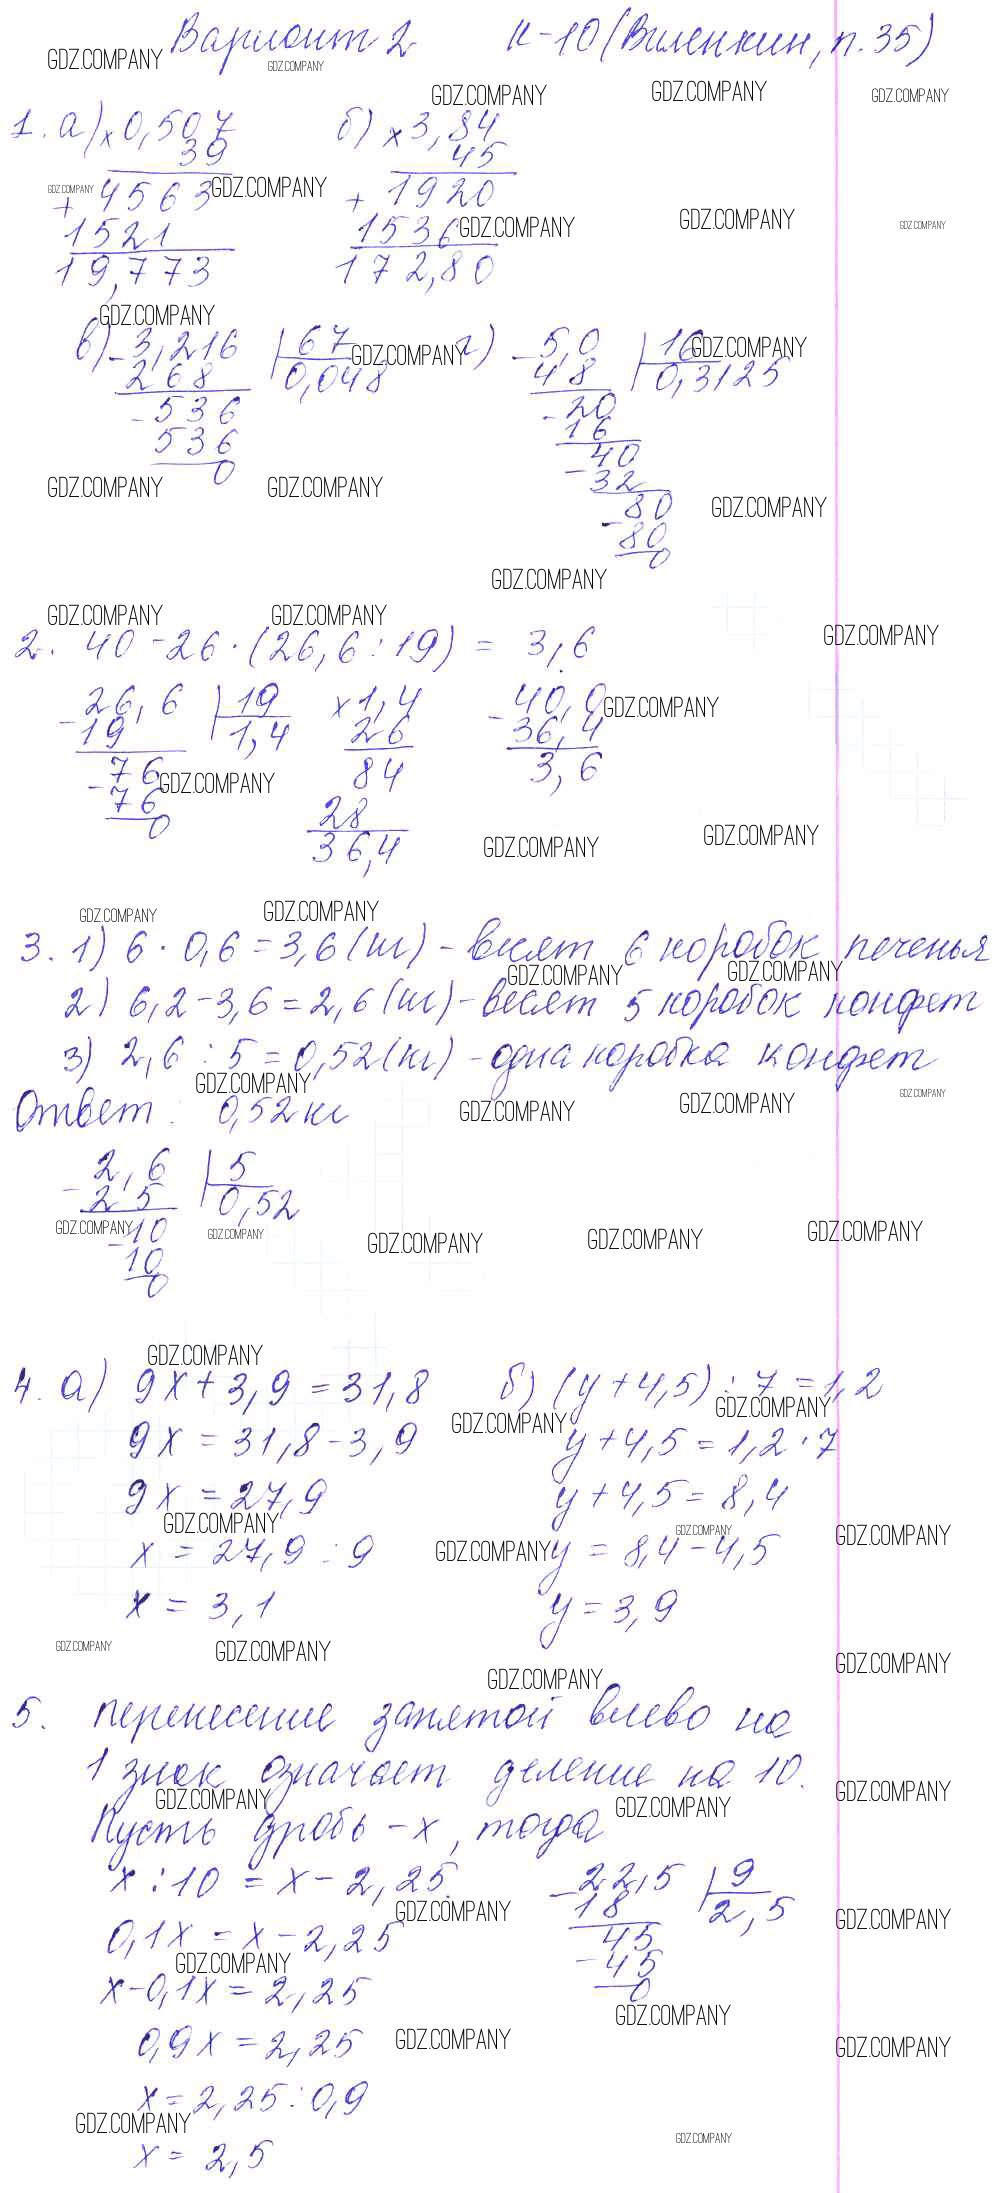 Вариант 2 К-10 (Виленкин, п.35)
1. а) × 0,507 б) × 3,84
39 45
+ 4563 + 1920
1521 1536
19,773 172,80
в) - 3,216 67 г) - 5,0 16
268 0,048 48 0,3125
- 536 - 20
536 16
0 - 40
32
- 80
80
0
2. 40 - 26 · (26,6 : 19) = 3,6
- 26,6 19 × 1,4 - 40,0
19 1,4 26 36,4
- 76 84 3,6
76 28
0 36,4
3. 1) 6 · 0,6 = 3,6 (кг) - весят 6 коробок печенья
2) 6,2 - 3,6 = 2,6 (кг) - весят 5 коробок конфет
3) 2,6 : 5 = 0,52 (кг) - одна коробка конфет
Ответ: 0,52 кг
- 2,6 5
2 5 0,52
- 10
10
0
4. а) 9x + 3,9 = 31,8 б) (y + 4,5) : 7 = 1,2
9x = 31,8 - 3,9 y + 4,5 = 1,2 · 7
9x = 27,9 y + 4,5 = 8,4
x = 27,9 : 9 y = 8,4 - 4,5
x = 3,1 y = 3,9
5. перенесение запятой влево на
1 знак означает деление на 10.
Пусть дробь - x, тогда
x : 10 = x - 2,25 - 22,5 9
0,1x = x - 2,25 18 2,5
x - 0,1x = 2,25 - 45
0,9x = 2,25 45
x = 2,25 : 0,9 0
x = 2,5
GDZ.COMPANY